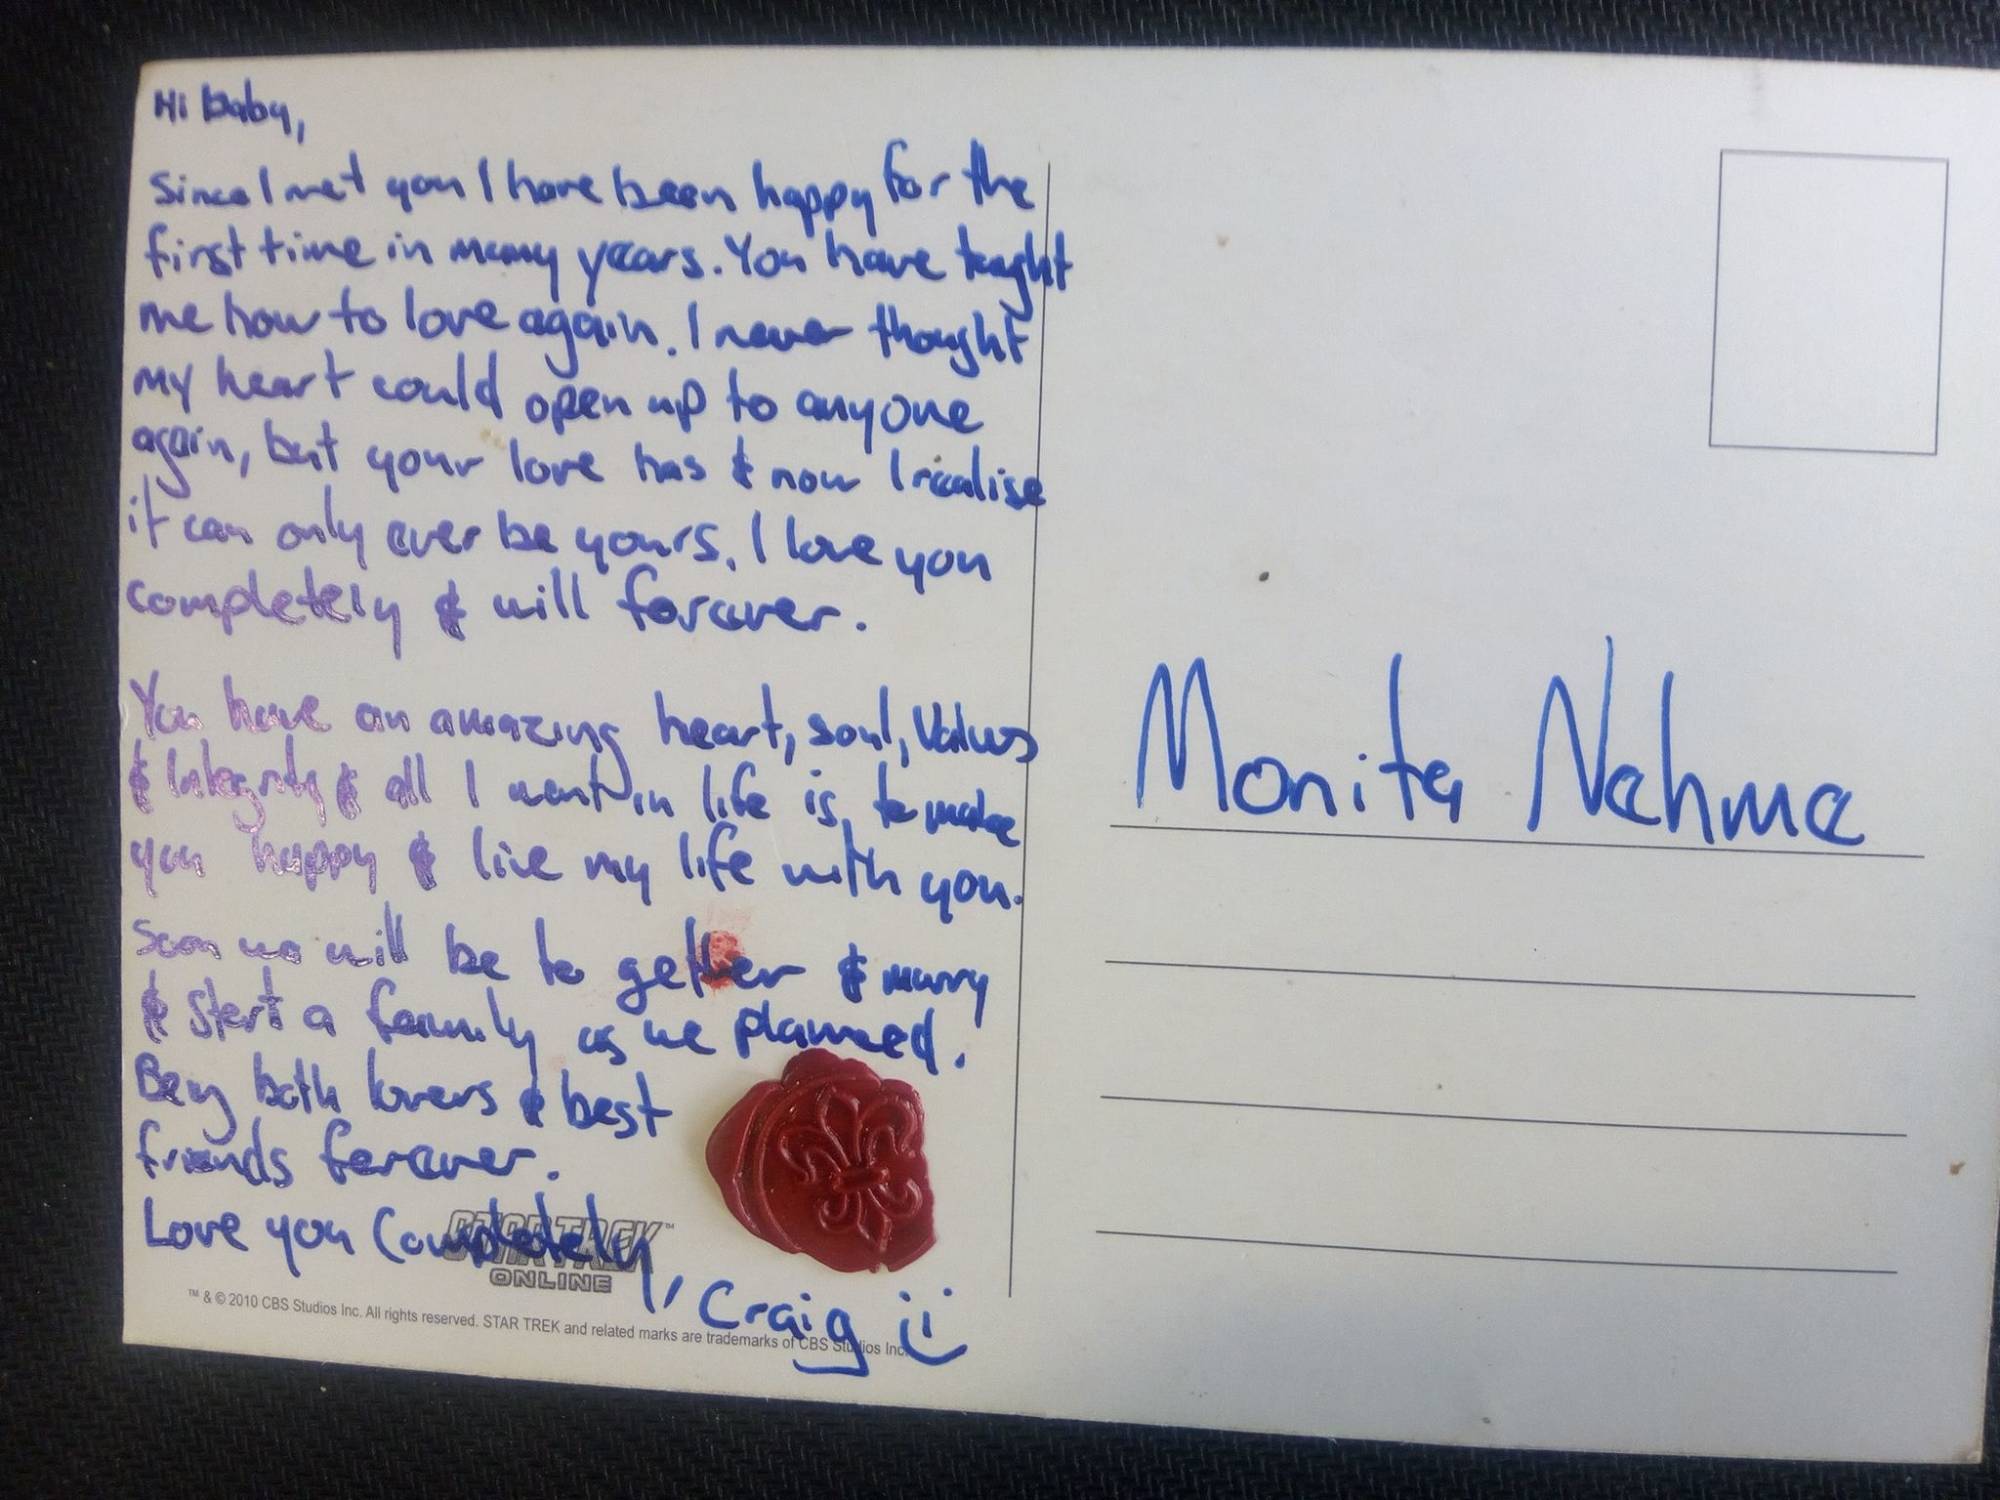 Hi baby,
Since I met you I have been happy for the
first time in many years. You have taught
me how to love again. I never thought
my heart could open up to anyone
again, but your love has & now I realise
it can only ever be yours. I love you
completely & will forever.
You have an amazing heart, soul, Values
& Integrity & all I want in life is to make
you happy & live my life with you.
Soon we will be to gether & marry
& start a family as we planned.
Being both lovers & best
friends forever.
Love you Completely,
Craig
STAR TREK™
ONLINE
™ & © 2010 CBS Studios Inc. All rights reserved. STAR TREK and related marks are trademarks of CBS Studios Inc.
Monita Nahma